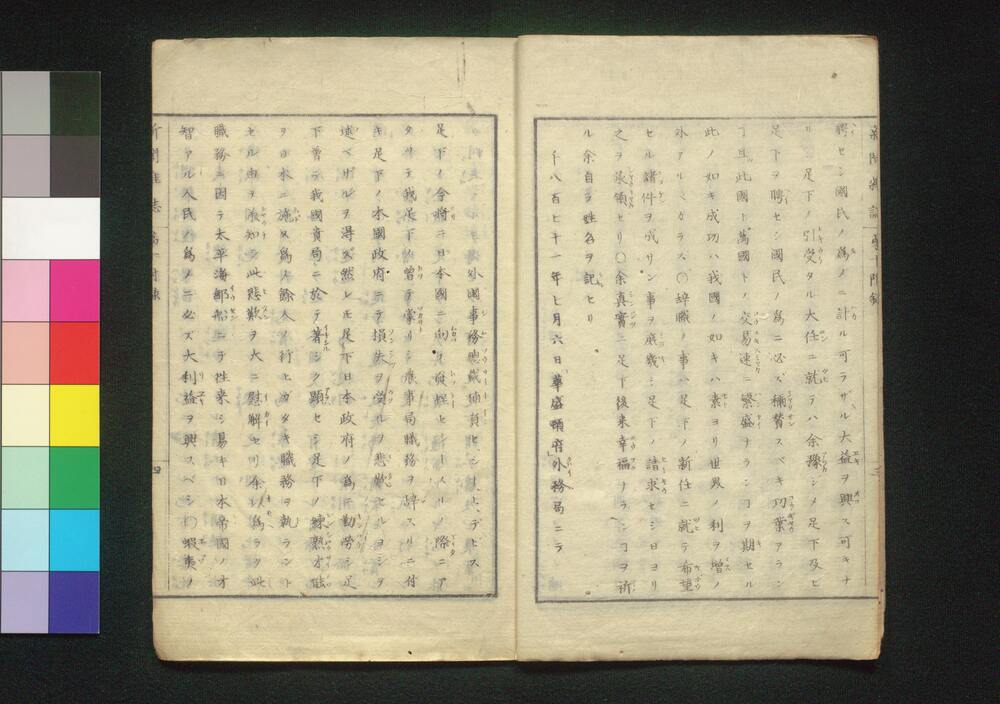 新聞雑誌 第十附録
聘セシ國民ノ爲メニ計ル可ラザル大益ヲ興ス可キナ
リ 足下ノ引受タル大任ニ就テハ余豫シメ足下及ヒ
足下ヲ聘セシ國民ノ爲ニ必ズ稱賛スベキ功業アラン
且此國ト萬國トノ交易速ニ繁盛ナランヿヲ期セル
此ノ如キ成功ハ我國ノ如キハ素ヨリ世界ノ利ヲ増ノ
ミナラス〇辞職ノ事ハ足下ノ新任ニ就テ希望
セル諸件ヲ成サン事ヲ庶幾シ足下ノ請求セシ日ヨリ
之ヲ領セリ〇余真實ニ足下後来幸福ナランヿヲ祈
ル余自ラ姓名ヲ記セリ
千八百七十一年七月六日華盛頓府外務局ニテ
外國事務總裁補員ヒ、シ、デビス
足下ノ合時ニ日本國ニ向テ發程セントスルノ際ニア
タリテ我足下ガ曽テ掌リシ農事局職務ヲ辞スルニ付
キ足下ノ本國政府ニテ損失ヲ受ルヲ悲歎セルヨシヲ
述ベザルヲ得ズ然レ𪜈足下日本政府ノ爲ニ勤勞シ足
下曽テ我國貴局ニ於テ著シク顕セシ足下ノ練熟才能
ヲ日本ニ施又爲ス餘人ノ行ヒガタキ職務ヲ執ラント
セル由ヲ承知シ此悲歎ヲ大ニ慰解セリ余レ爲ラク此
職務ニ因テ太平海郵船ニテ往来シ易キ日本帝國ノオ
智アル人民ノ爲メニ必ズ大利益ヲ興スベシ〇蝦夷ノ
新聞雑誌 第十附録 四